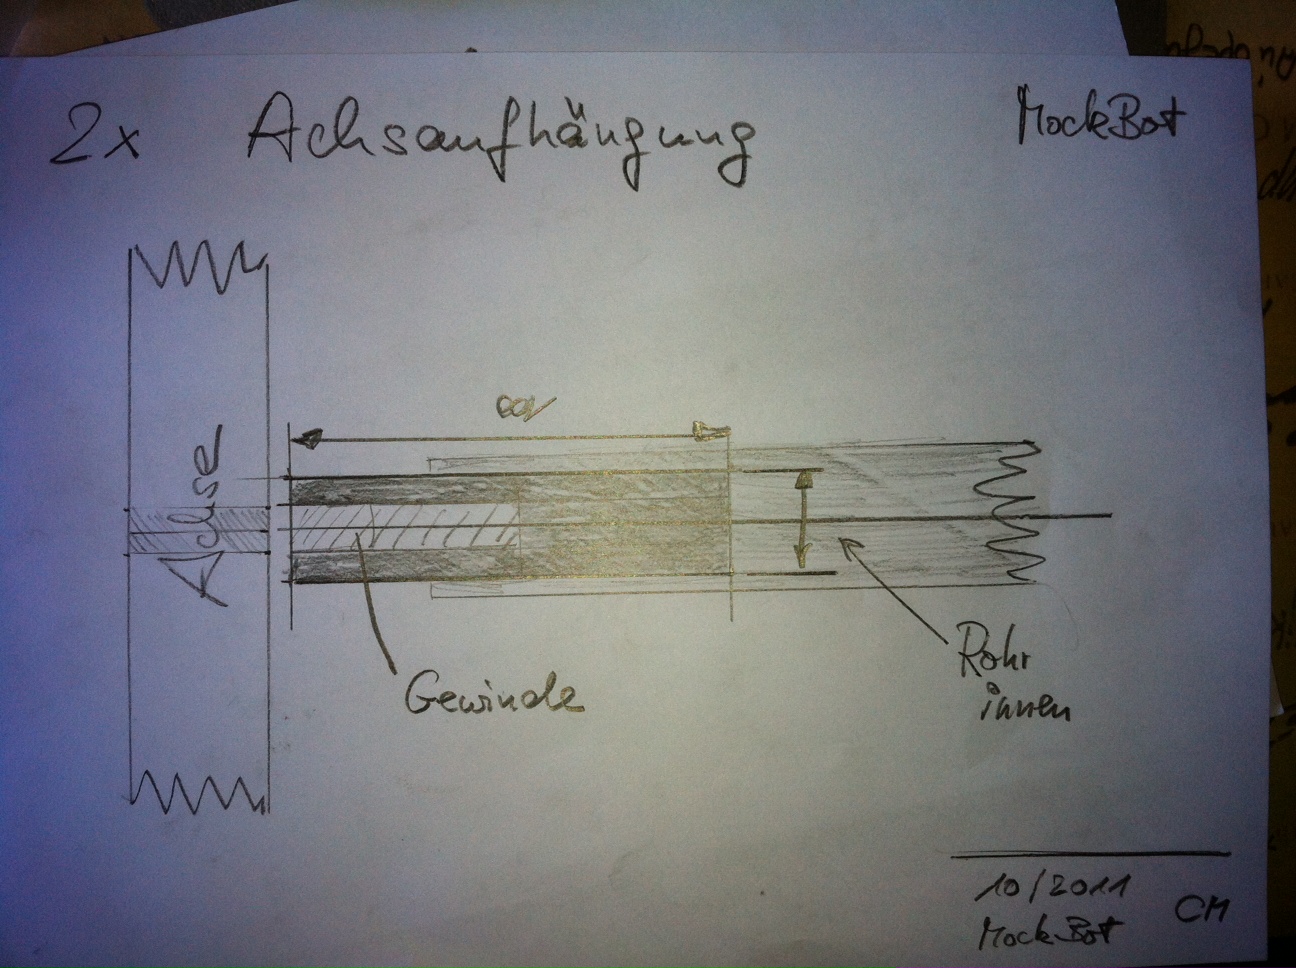 2x Achsaufhängung MockBot
Achse
Gewinde
Rohr
innen
10/2011
MockBot CM